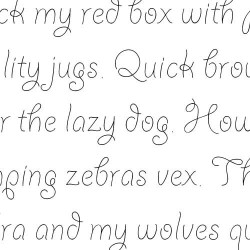 ck my red box with
lity jugs. Quick brow
r the lazy dog. How
ping zebras vex. Th
ra and my wolves qu